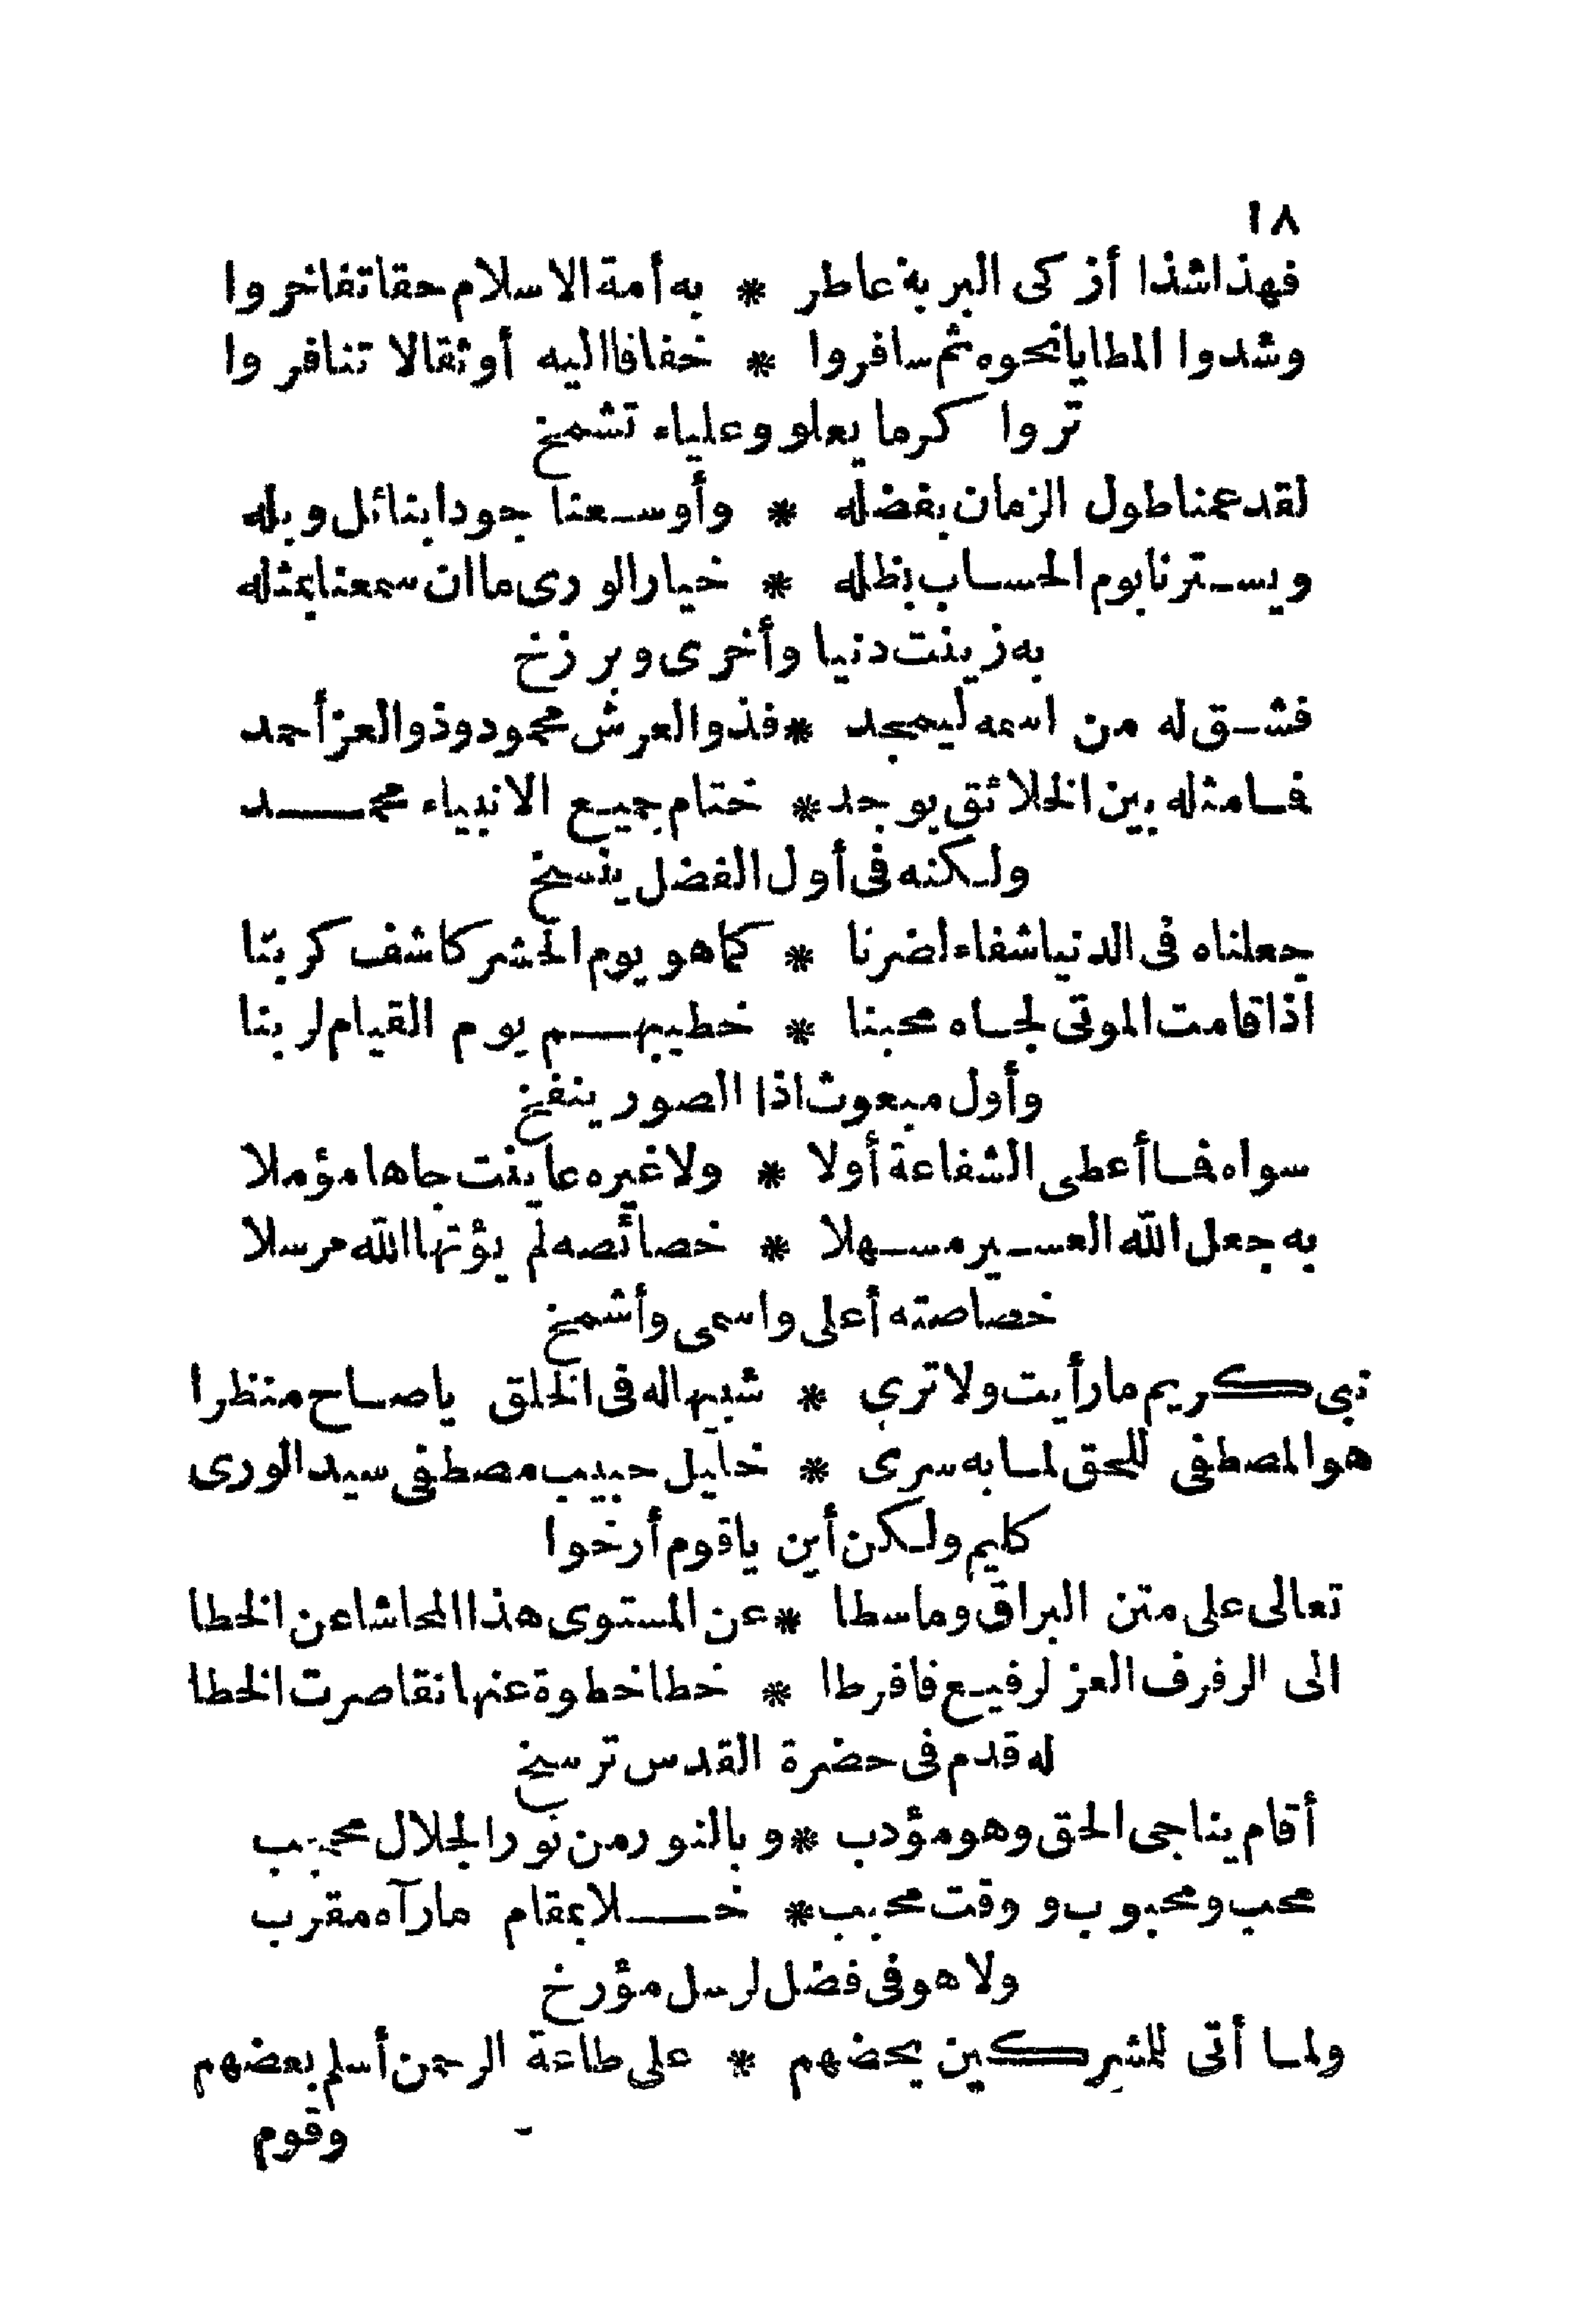 ١٨
فهذا شذا أزكى البرية عاطر * به أمة الاسلام حقا تفاخروا
وشدوا المطايا نحوه ثم سافروا * خفافا اليه أو ثقالا تنافروا
تروا كرما يعلو وعلياء تشمخ
لقد عمنا طول الزمان بفضله * وأوسعنا جودا بنائل وبله
ويسترنا يوم الحساب بظله * خيار الورى ما ان سمعنا بمثله
به زينت دنيا وأخرى وبرزخ
فشق له من اسمه ليمجد * فذو العرش محمود وذو العز أحمد
فما مثله بين الخلائق يوجد * ختام جميع الانبياء محمد
ولكنه فى أول الفضل ينسخ
جعلناه فى الدنيا شفاء لضرنا * كما هو يوم الحشر كاشف كربنا
اذا قامت الموتى لجاه محبنا * خطيبهم يوم القيام لربنا
وأول مبعوث اذا الصور ينفخ
سواه فما أعطى الشفاعة أولا * ولا غيره عاينت جاها مؤملا
به جعل الله العسير مسهلا * خصائصه لم يؤتها الله مرسلا
خصاصته أعلى واسمى وأشمخ
نبى كريم ما رأيت ولا ترى * شبيها له فى الخلق يا صاح منظرا
هو المصطفى للحق لما به سرى * خليل حبيب مصطفى سيد الورى
كليم ولكن أين يا قوم أرخوا
تعالى على متن البراق وما سطا * عن المستوى هذا المحاشا عن الخطا
الى الرفرف العز لرفيع فافرطا * خطا خطوة عنها تقاصرت الخطا
له قدم فى حضرة القدس ترسخ
أقام يناجى الحق وهو مؤدب * وبالنور من نور الجلال محجب
محب ومحبوب ووقت محبب * خلا بمقام ما رآه مقرب
ولا هو فى فضل لرسل مؤرخ
ولما أتى للمشركين يحضهم * على طاعة الرحمن أسلم بعضهم
وقوم